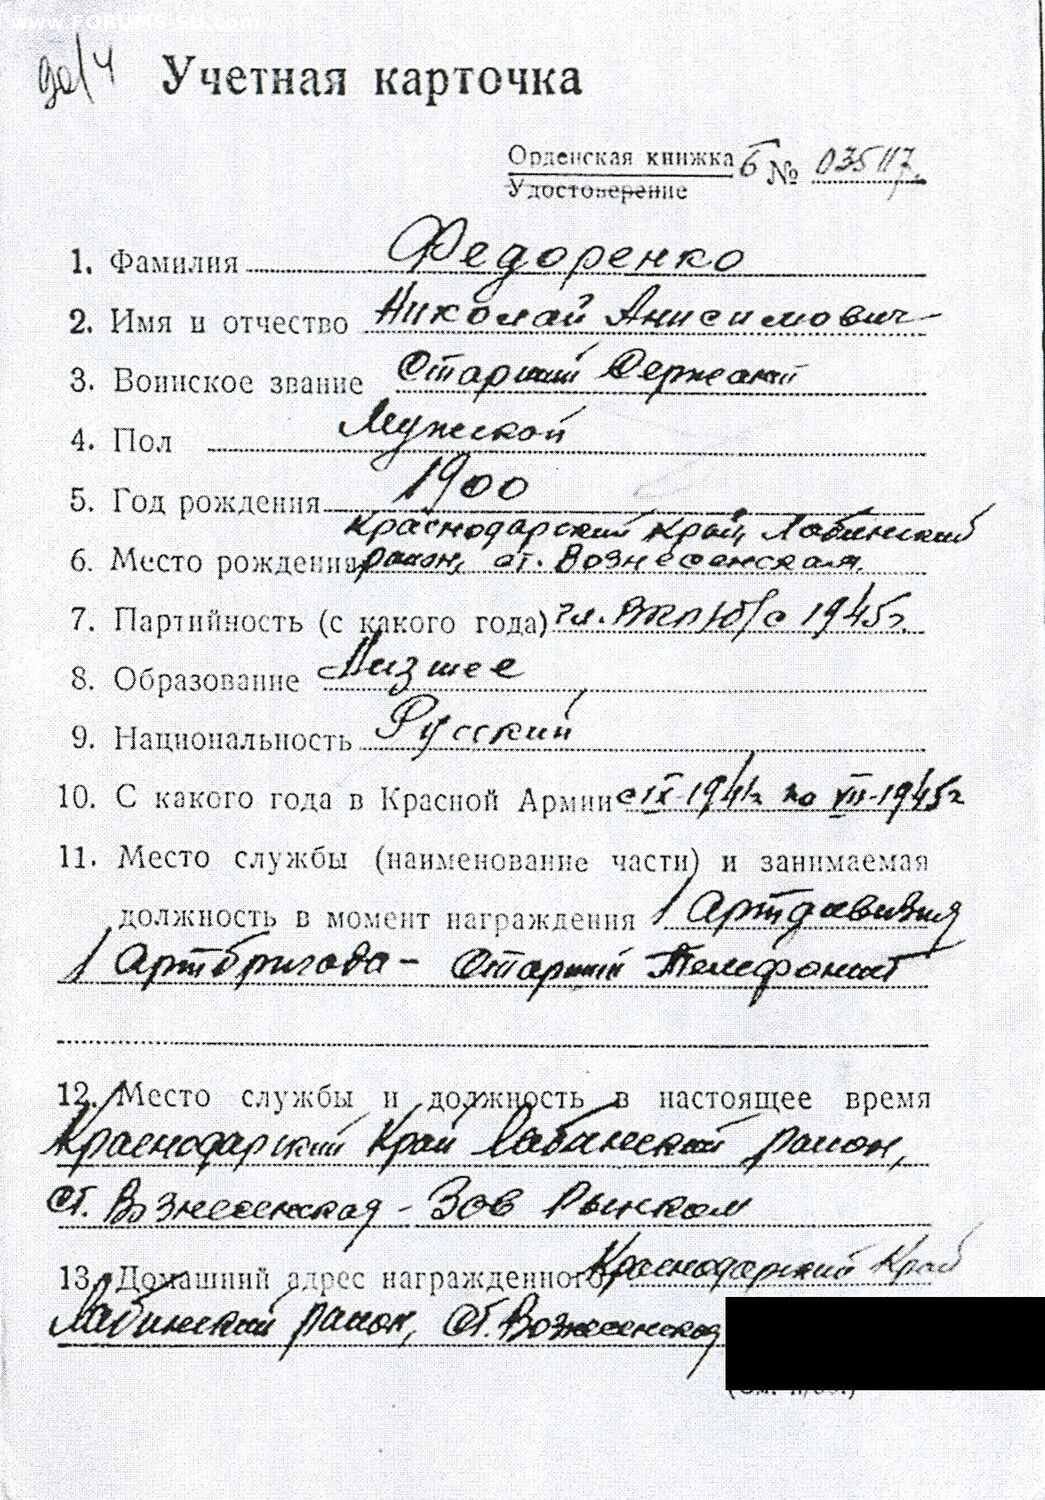 www.FORUMS-SU.com
Учетная карточка
Орденская книжка Б № 035117.
Удостоверение
1. Фамилия Федоренко
2. Имя и отчество Николай Анисимович
3. Воинское звание Старший Сержант
4. Пол Мужской
5. Год рождения 1900
Краснодарский Край, Лабинский
6. Место рождения район, ст. Вознесенская.
7. Партийность (с какого года) чл. ВКП/б/ с 1945г.
8. Образование Низшее
9. Национальность Русский
10. С какого года в Красной Армии с IX-1941г по VII-1945г
11. Место службы (наименование части) и занимаемая
должность в момент награждения 1 Артдивизия
1 Артбригада - Старший Телефонист
12. Место службы и должность в настоящее время
Краснодарский Край Лабинский район,
ст. Вознесенская - Зав Рынком
13. Домашний адрес награжденного Краснодарский Край
Лабинский район, ст. Вознесенская